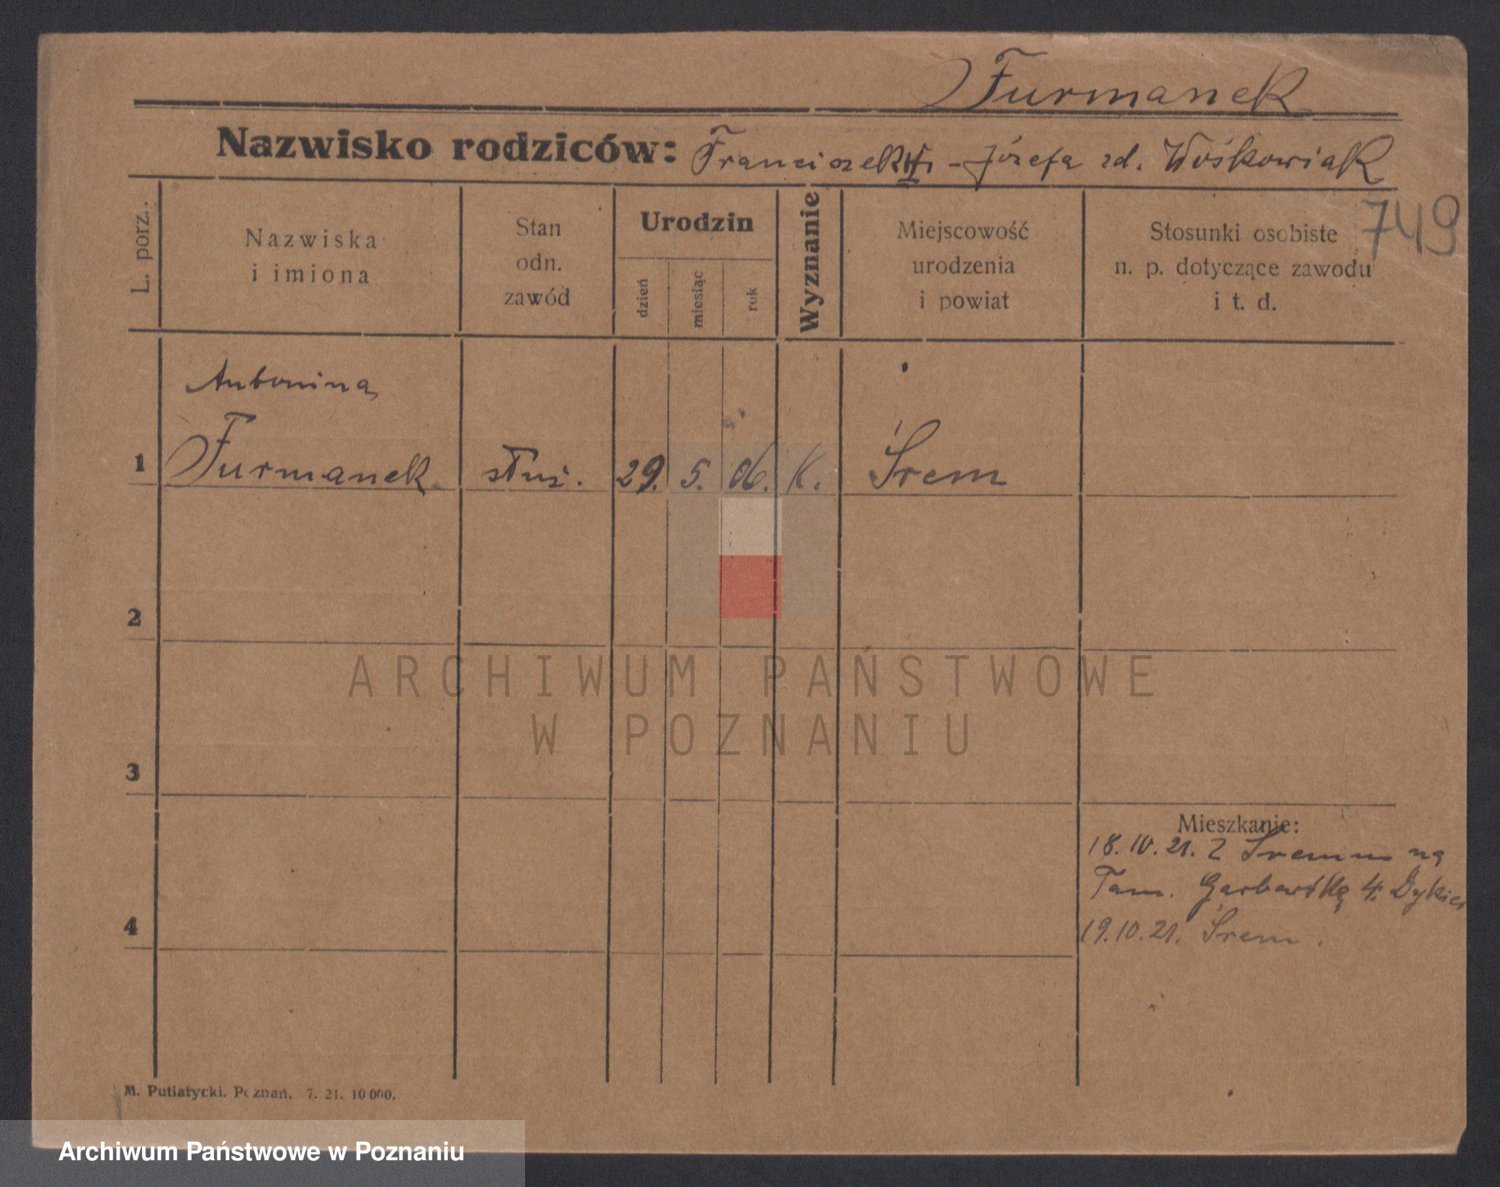 Furmanek
Nazwisko rodziców: Franciszek - Józefa zd. Wośkowiak
749
L. porz.
Nazwiska
i imiona
Stan
odn.
zawód
Urodzin
dzień
miesiąc
rok
Wyznanie
Miejscowość
urodzenia
i powiat
Stosunki osobiste
n. p. dotyczące zawodu
i t. d.
Antonina
1 Furmanek służ. 29. 5. 06. K. Śrem
2
ARCHIWUM PAŃSTWOWE
W POZNANIU
3
Mieszkanie:
18.10.21. Z Śremu na
Tam. Garbarską 4.
4
19.10.21. Śrem.
M. Putiatycki. Poznań. 7. 21. 10 000.
Archiwum Państwowe w Poznaniu